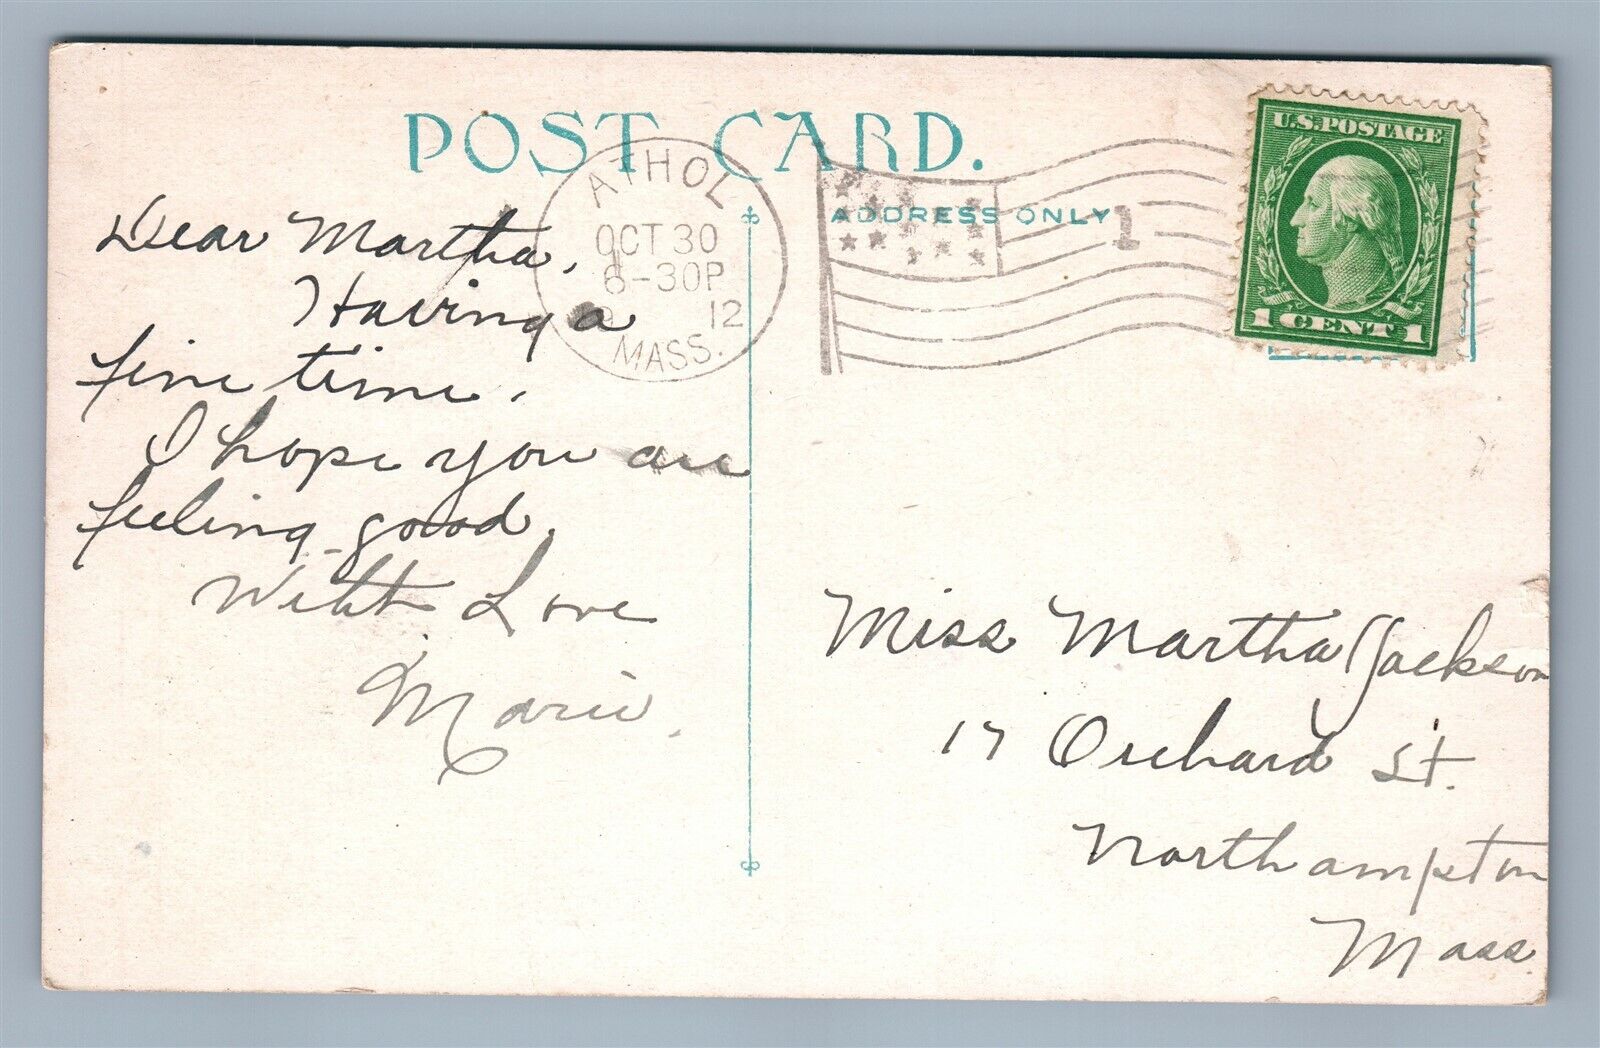 POST CARD.
ATHOL
OCT 30
6-30P
12
MASS.
ADDRESS ONLY
1
U.S. POSTAGE
1 CENT 1
Dear Martha,
Having a
fine time.
I hope you are
feeling good.
With Love
Marie.
Miss Martha Jackson
17 Orchard St.
Northampton
Mass.